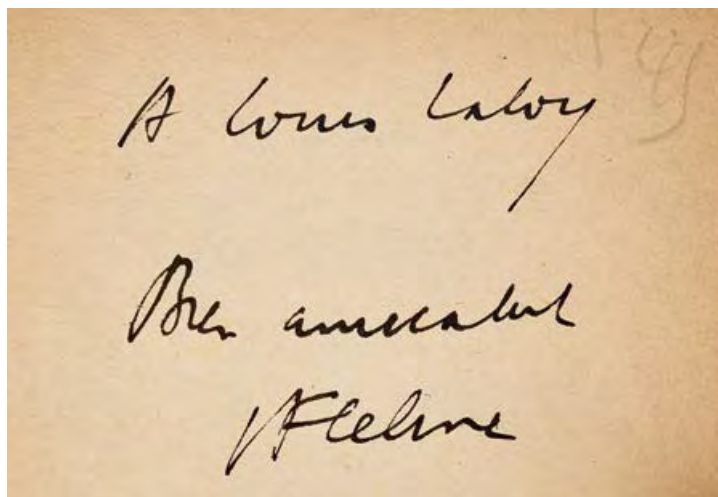 A Louis Laloy
Bien amicalement
LF Celine